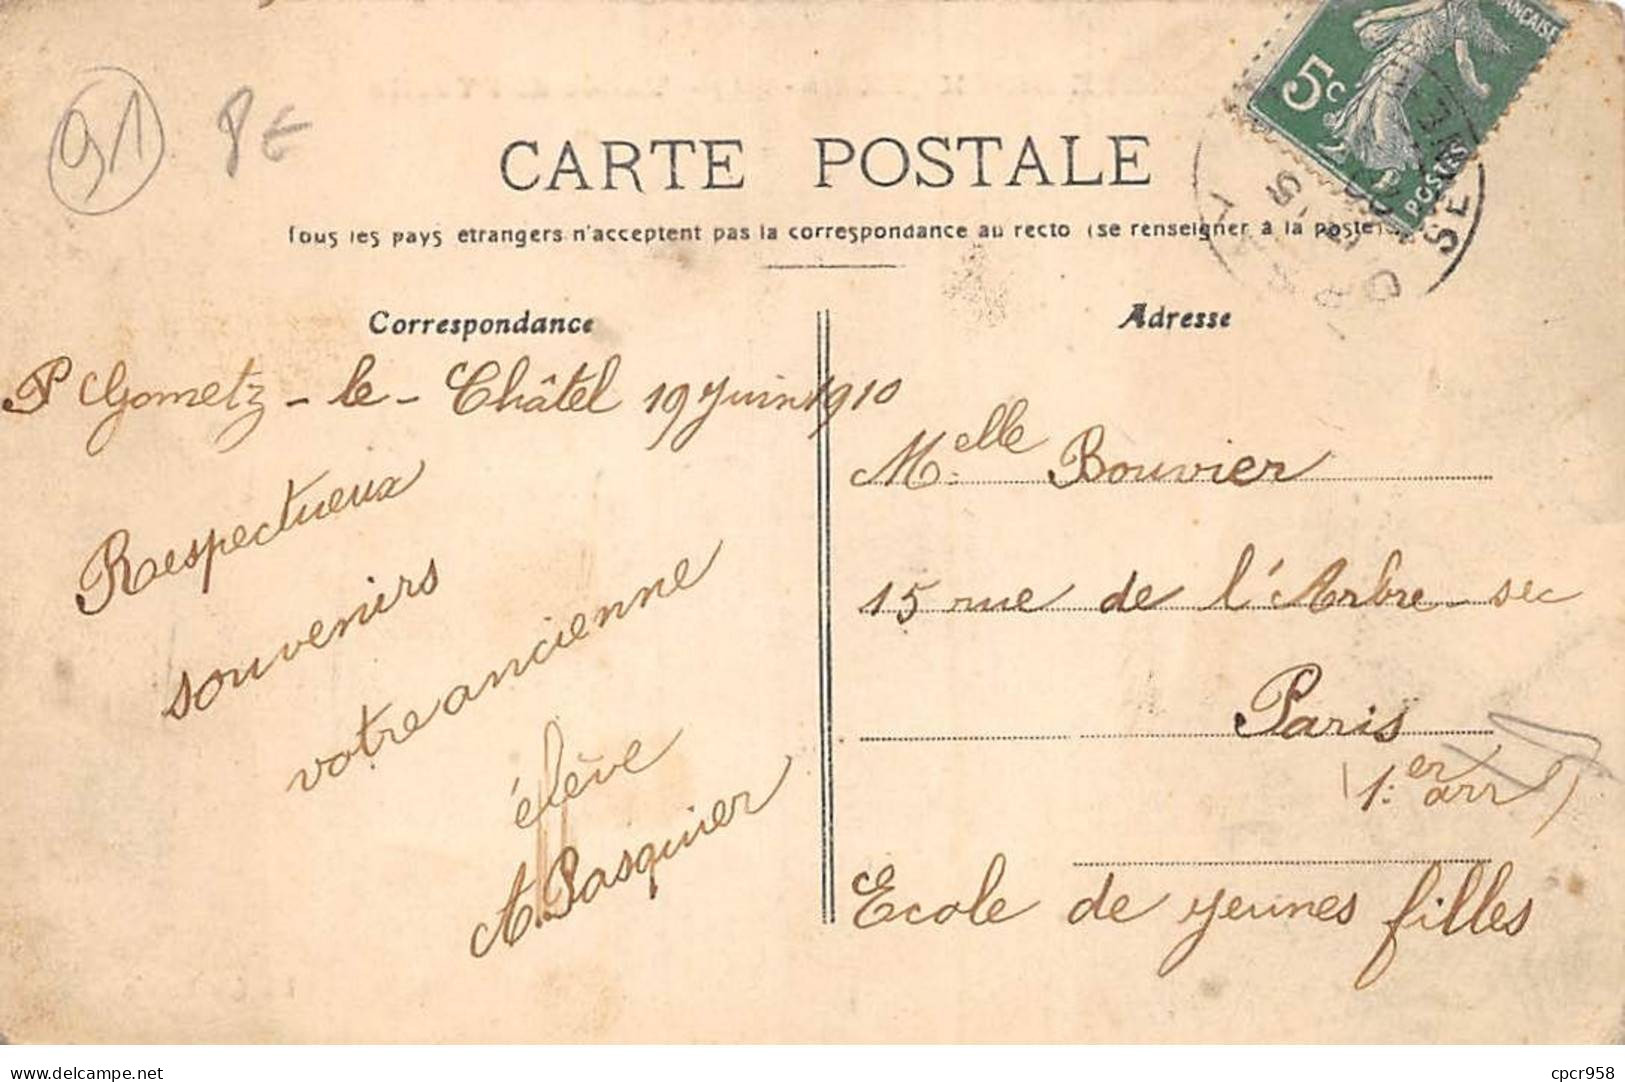 91
8€
CARTE POSTALE
Tous les pays etrangers n'acceptent pas la correspondance au recto (se renseigner à la poste)
5c
POSTES
Correspondance
Gometz-le-Châtel 19 Juin 1910
Respectueux
souvenirs
votre ancienne
élève
A. Pasquier
Adresse
M.elle Bouvier
15 rue de l'Arbre-sec
Paris
(1.er arr)
Ecole de jeunes filles
delcampe.net
cpcr958